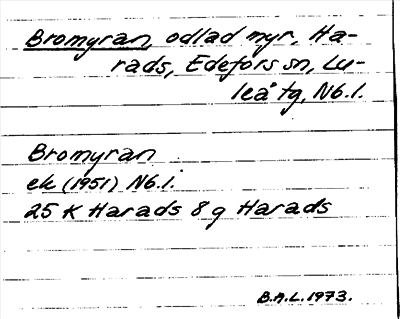 Bromyran, odlad myr, Ha-
rads, Edefors sn, Lu-
leå tg, N6.1.
Bromyran
ek (1951) N6.1.
25 K Harads 8 g Harads
B.A.L. 1973.